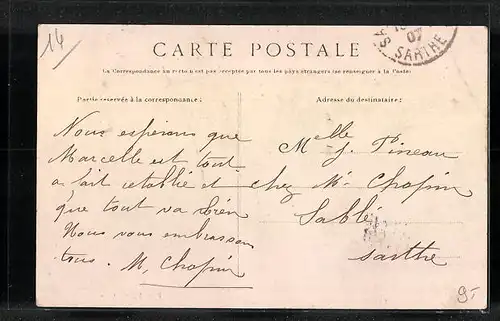 14
CARTE POSTALE
07
SARTHE
La Correspondance au recto n'est pas acceptée par tous les pays étrangers (se renseigner à la Poste)
Partie réservée à la correspondance :
Adresse du destinataire :
Nous espérons que
Marcelle est tout
a fait rétablie et
que tout va bien
Nous vous embrassons
tous. M. Chopin
Melle J. Pineau
chez Mr Chopin
Sablé
Sarthe
9.-